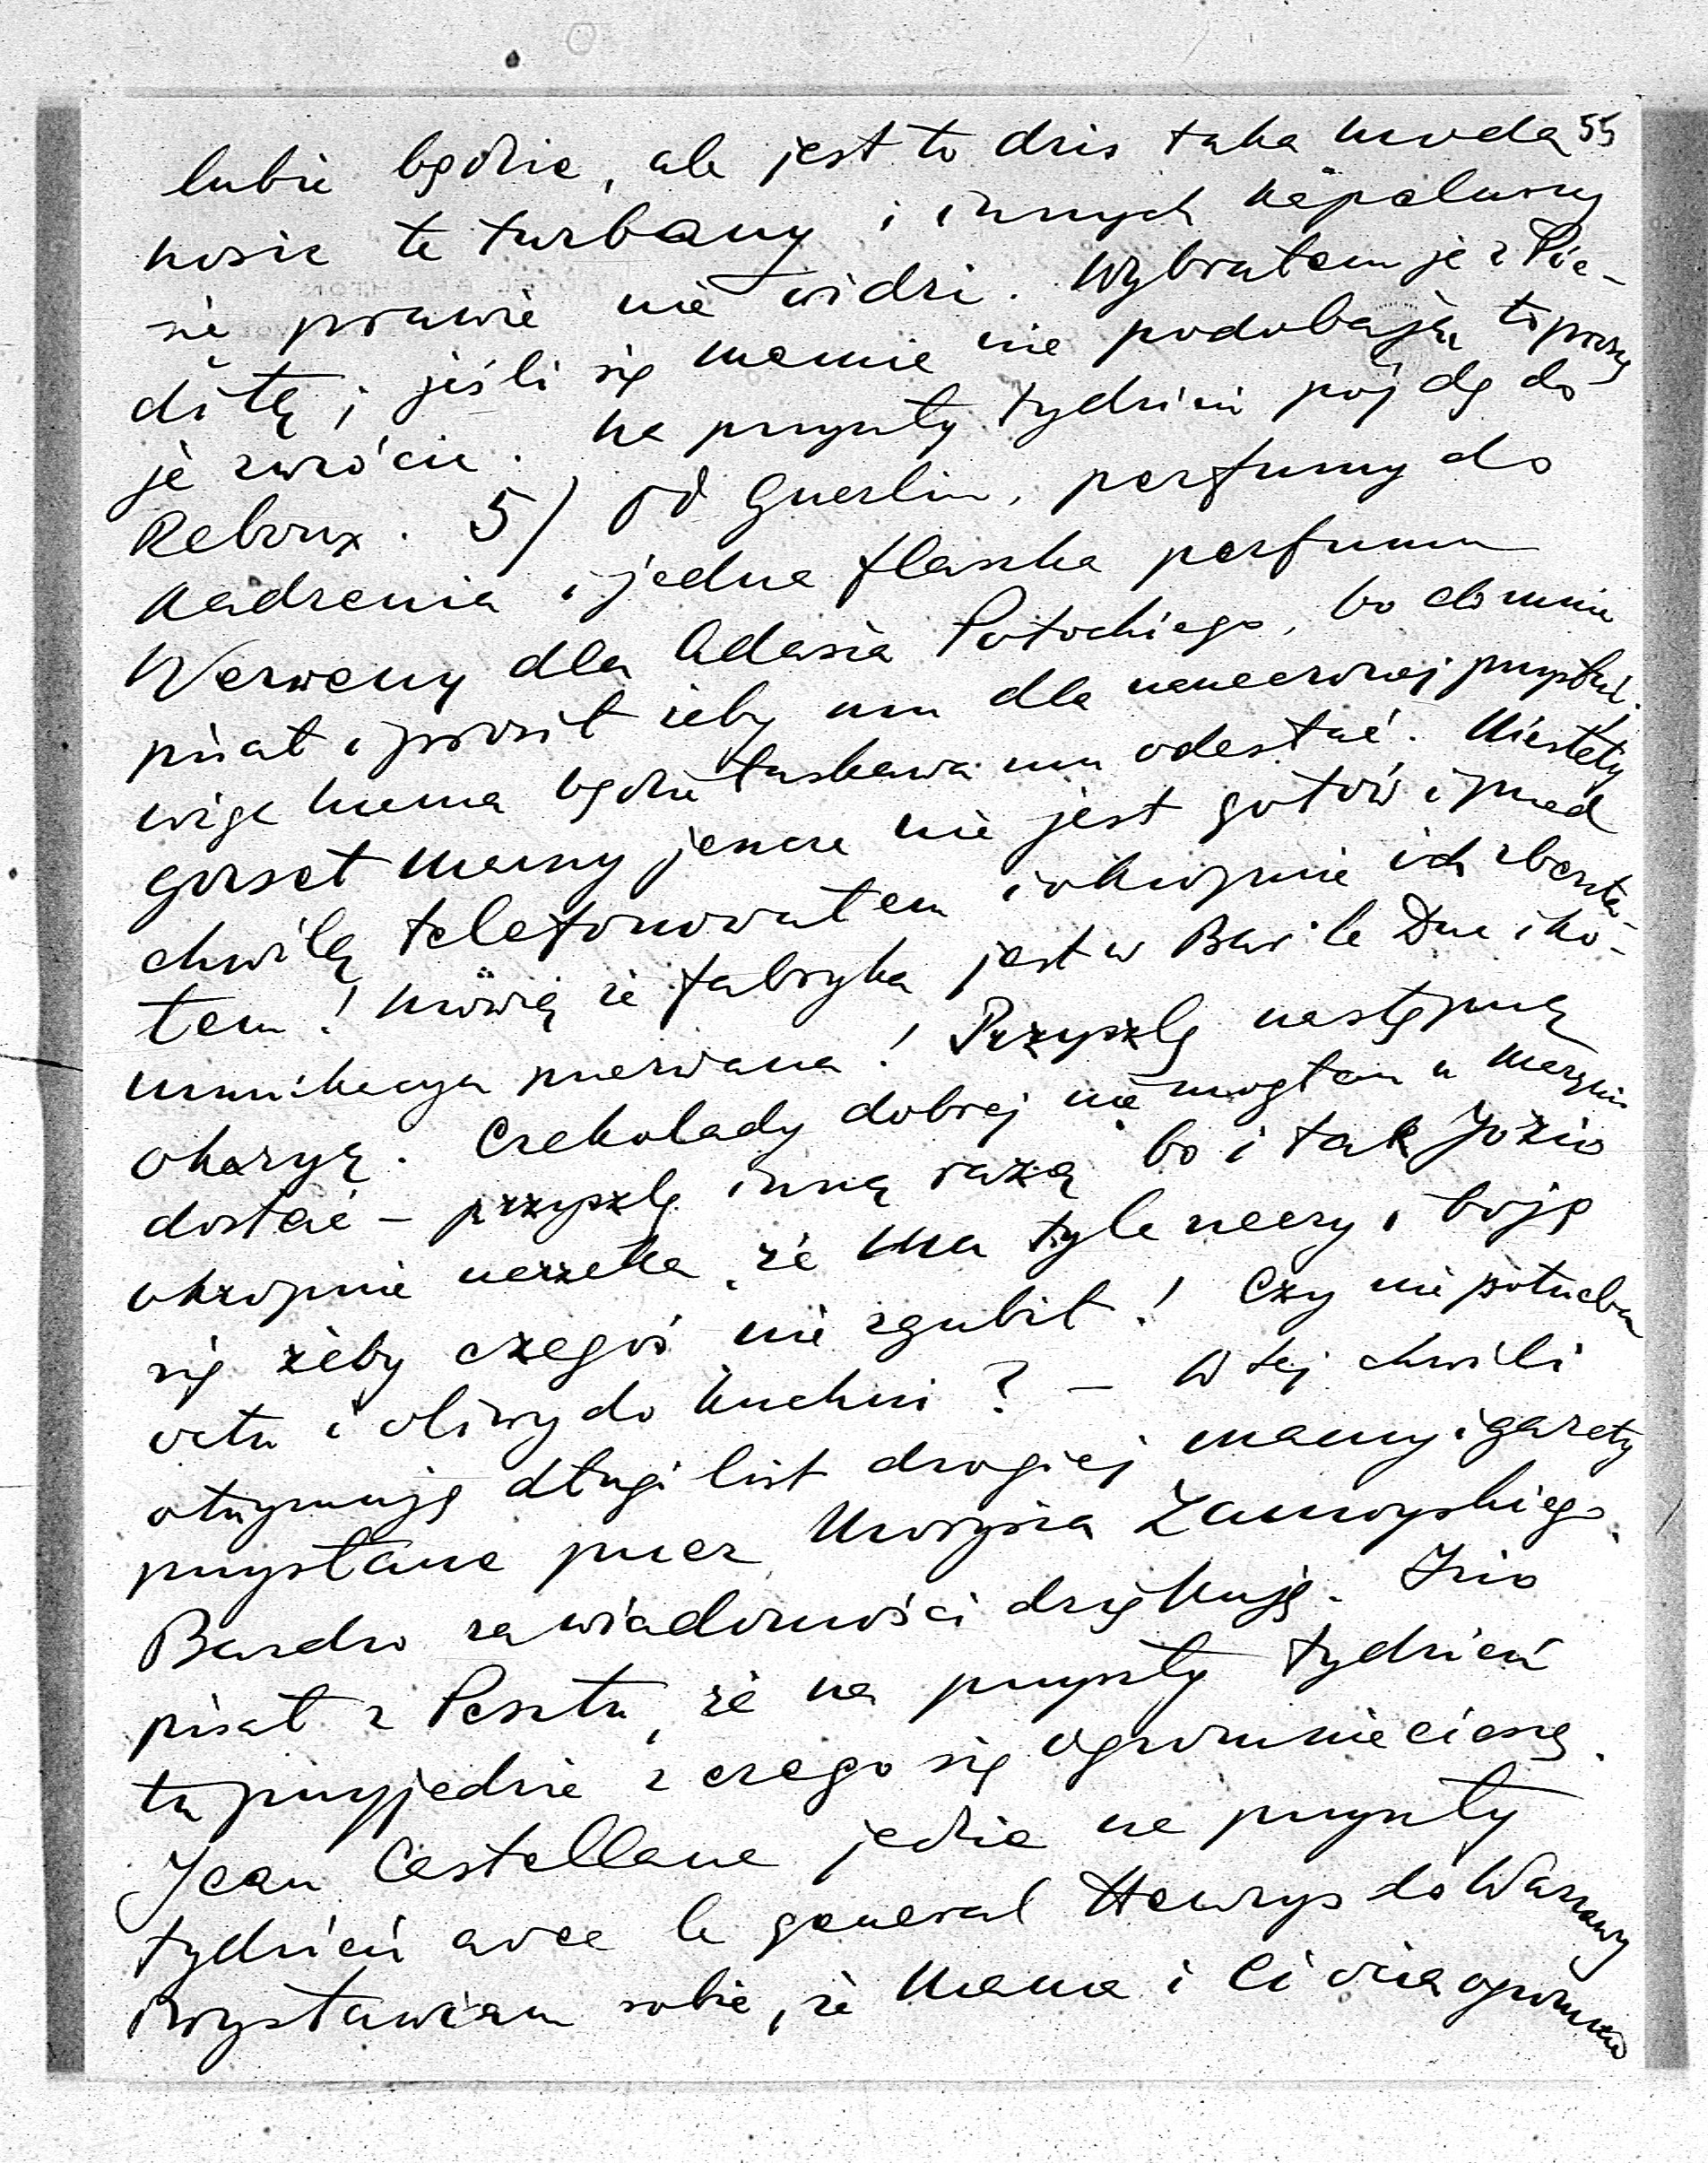 55
lubić będzie, ale jest to dziś taka moda
nosić te turbany i innych kapeluszy
się prawie nie widzi. Wybrałem je z Pie-
ditę i jeśli się mamie nie podobają to proszę
je zwrócić. Na przyszły tydzień pójdę do
Reboux. 5) Od Guerlin, perfumy do
kadzenia i jedna flaszka perfumu
Werweny dla Adasia Potockiego, bo do mnie
pisał i prosił żeby mu dla narzeczonej przysłać.
więc mama będzie łaskawa mu odesłać. Niestety
gorset mamy jeszcze nie jest gotów i przed
chwilą telefonowałem i okropnie ich zbeszta-
łem! Mówią że fabryka jest w Bar le Duc i ko-
munikacya przerwana! Przyszlę następną
okazyą. Czekolady dobrej nie mogłem u
dostać – przyszlę inną razą bo i tak Józio
okropnie narzeka, że ma tyle rzeczy i boję
się żeby czegoś nie zgubił! Czy nie potrzeba
octu i oliwy do kuchni? – W tej chwili
otrzymuję długi list drogiej mamy i gazety
przysłane przez Maurysia Zamoyskiego.
Bardzo za wiadomości dziękuję.
pisał z Pesztu, że na przyszły tydzień
tu przyjedzie z czego się ogromnie cieszę.
Jean Castellane jedzie na przyszły
tydzień avec le general Henrys do Warszawy
Wystawiam sobie, że Mama i Ciocia ogromnie